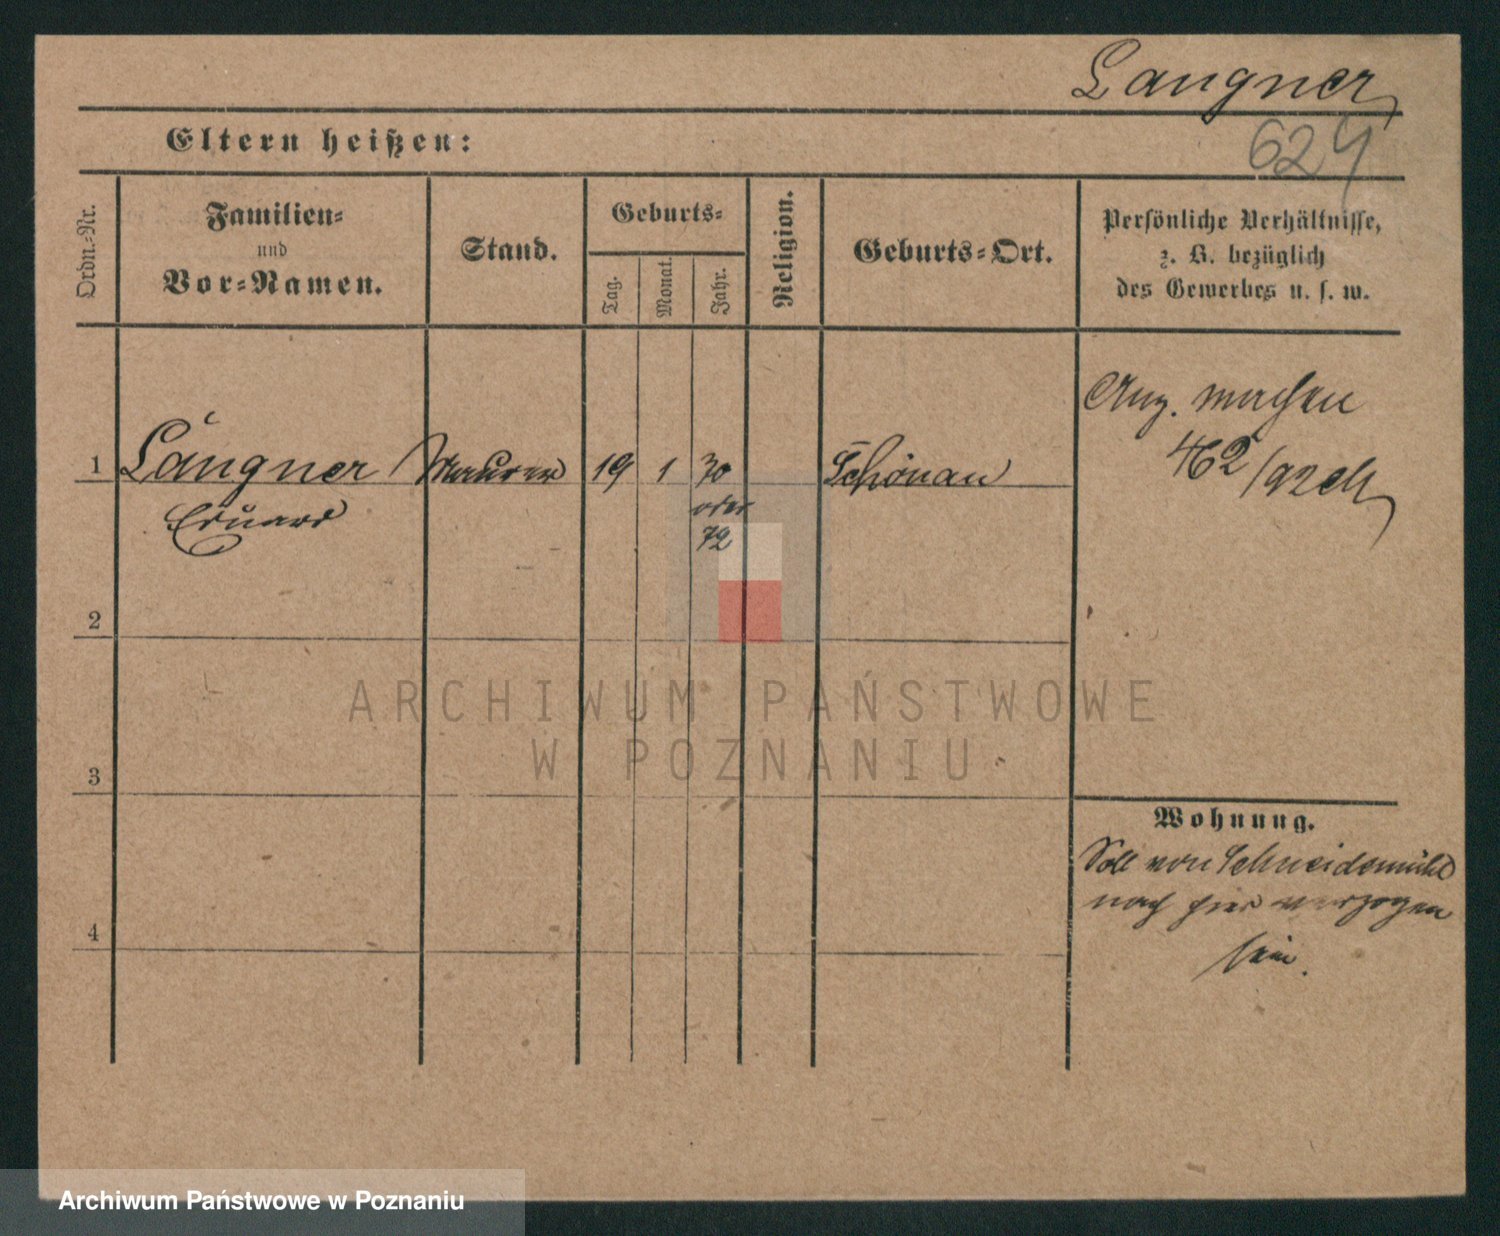 Langner
624
Eltern heißen:
Ordn.-Nr.
Familien-
und
Vor-Namen.
Stand.
Geburts-
Tag.
Monat.
Jahr.
Religion.
Geburts-Ort.
Persönliche Verhältnisse,
z. B. bezüglich
des Gewerbes u. s. w.
1 Langner Maurer 19 1 70 Schönau
Eduard
oder
72
Anz. machen
462/92
2
3
4
Wohnung.
Soll von Schneidemühl
nach hier verzogen
sein.
ARCHIWUM PAŃSTWOWE
W POZNANIU
Archiwum Państwowe w Poznaniu